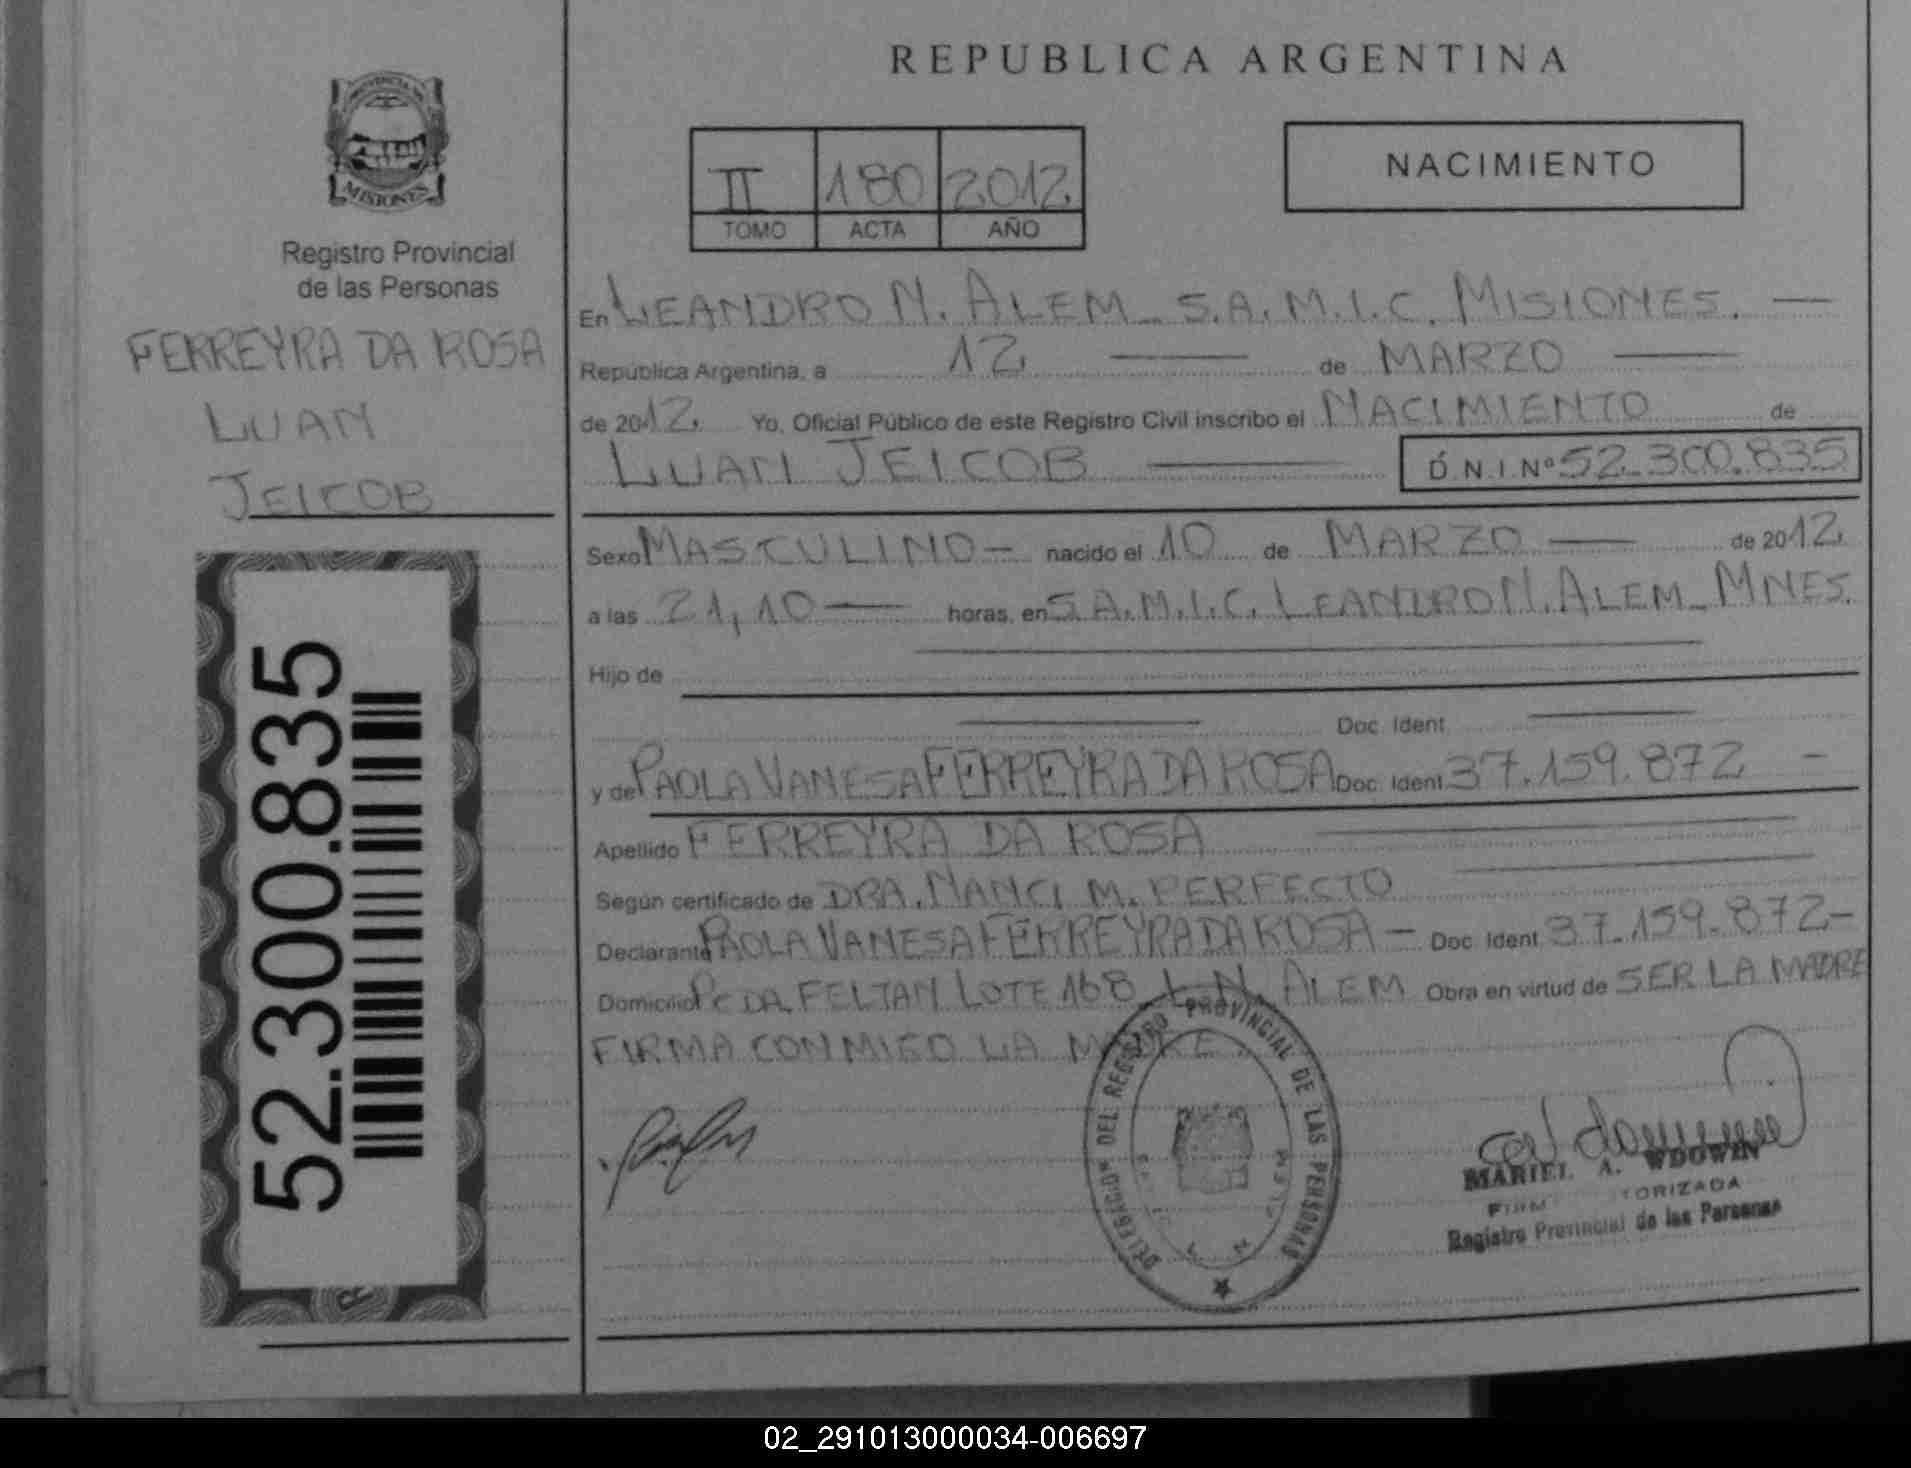 REPUBLICA ARGENTINA
PROVINCIA DE
MISIONES
Registro Provincial
de las Personas
FERREYRA DA ROSA
LUAN
JEICOB
52.300.835
II 180 2012
TOMO ACTA AÑO
NACIMIENTO
En LEANDRO N. ALEM - S.A.M.I.C. MISIONES.
República Argentina, a 12 de MARZO
de 2012, Yo, Oficial Público de este Registro Civil inscribo el NACIMIENTO de
LUAN JEICOB D.N.I. Nº 52.300.835
Sexo MASCULINO - nacido el 10 de MARZO de 2012,
a las 21,10 horas, en S.A.M.I.C. LEANDRO N. ALEM - MNES.
Hijo de
Doc. Ident.
y de PAOLA VANESA FERREYRA DA ROSA Doc. Ident. 37.159.872 -
Apellido FERREYRA DA ROSA
Según certificado de DRA. NANCI M. PERFECTO
Declarante PAOLA VANESA FERREYRA DA ROSA - Doc. Ident. 37.159.872 -
Domicilio PCDA. FELTAN LOTE 168 L. N. ALEM Obra en virtud de SER LA MADRE
FIRMA CONMIGO LA MADRE.
DELEGACION DEL REGISTRO PROVINCIAL DE LAS PERSONAS
L N ALEM
MARIEL A. WDOWIN
FIRMA AUTORIZADA
Registro Provincial de las Personas
02_291013000034-006697